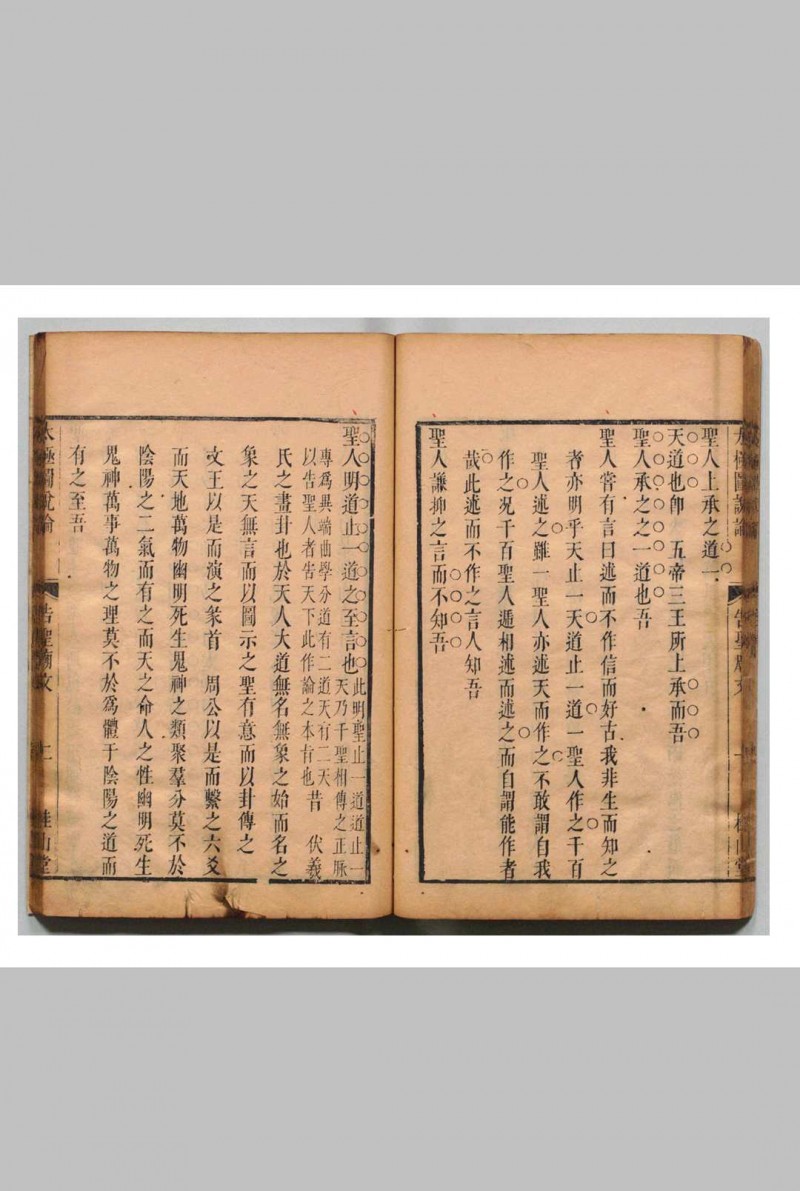 聖人上承之道一
天道也卽　五帝三王所上承而吾
聖人承之之一道也吾
聖人甞有言曰述而不作信而好古我非生而知之
者亦明乎天止一天道止一道一聖人作之千百
聖人述之雖一聖人亦述天而作之不敢謂自我
作之况千百聖人遞相述而述之而自謂能作者
哉此述而不作之言人知吾
聖人謙抑之言而不知吾
聖人明道止一道之至言也此明聖止一道道止一
天乃千聖相傳之正脉
專爲異端曲學分道有二道天有二天
以告聖人者告天下此作論之本旨也昔　伏羲
氏之畫卦也於天人大道無名無象之始而名之
象之天無言而以圖示之聖有意而以卦傳之
文王以是而演之彖首　周公以是而繫之六爻
而天地萬物幽明死生鬼神之類聚羣分莫不於
陰陽之二氣而有之而天之命人之性幽明死生
鬼神萬事萬物之理莫不於爲體于陰陽之道而
有之至吾
太極圖說論　告聖廟文　二　桂山堂